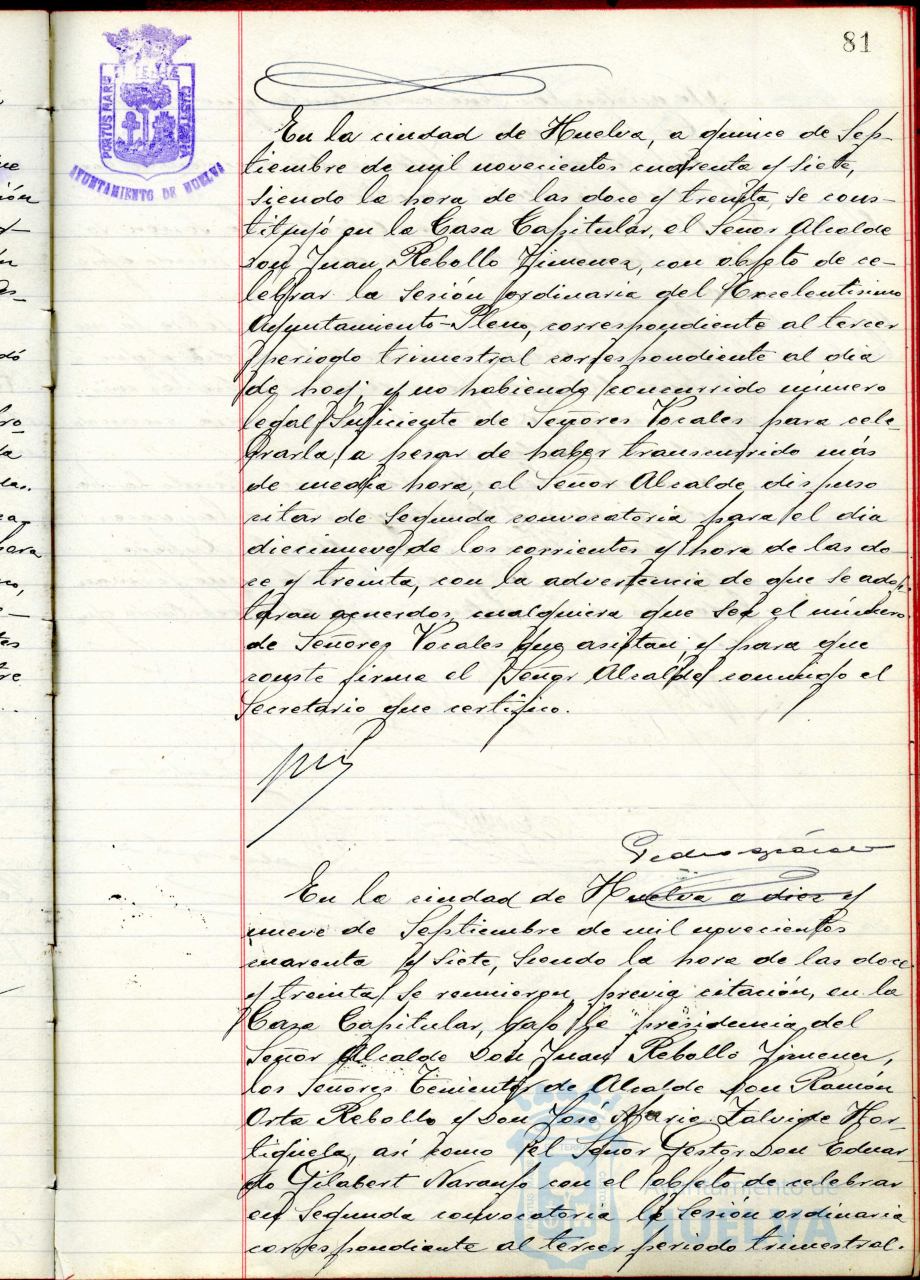 81
PORTUS MARIS
ET TERRE
CUSTODIA
AYUNTAMIENTO DE HUELVA
En la ciudad de Huelva, a quince de Sep-
tiembre de mil novecientos cuarenta y siete,
siendo la hora de las doce y treinta, se cons-
tituyó en la Casa Capitular, el Señor Alcalde
Don Juan Rebollo Jimenez, con objeto de ce-
lebrar la sesión ordinaria del Excelentísimo
Ayuntamiento-Pleno, correspondiente al tercer
periodo trimestral correspondiente al dia
de hoy; y no habiendo concurrido número
legal suficiente de Señores Vocales para cele-
brarla, a pesar de haber transcurrido más
de media hora, el Señor Alcalde, dispuso
citar de segunda convocatoria para el dia
diecinueve de los corrientes y hora de las do-
ce y treinta, con la advertencia de que se adop-
taran acuerdos, cualquiera que sea el número
de Señores Vocales que asistan; y para que
conste firma el Señor Alcalde conmigo el
Secretario que certifico.
En la ciudad de Huelva a diez y
nueve de Septiembre de mil novecientos
cuarenta y siete, siendo la hora de las doce
y treinta, se reunieron, previa citación, en la
Casa Capitular, bajo la presidencia del
Señor Alcalde Don Juan Rebollo Jimenez,
los Señores Tenientes de Alcalde Don Ramón
Orta Rebollo y Don José Maria Zalvide Hor-
tigüela, así como el Señor Gestor Don Eduar-
do Gilabert Naranjo con el objeto de celebrar
en segunda convocatoria la sesión ordinaria
correspondiente al tercer periodo trimestral.
Ayuntamiento de
HUELVA